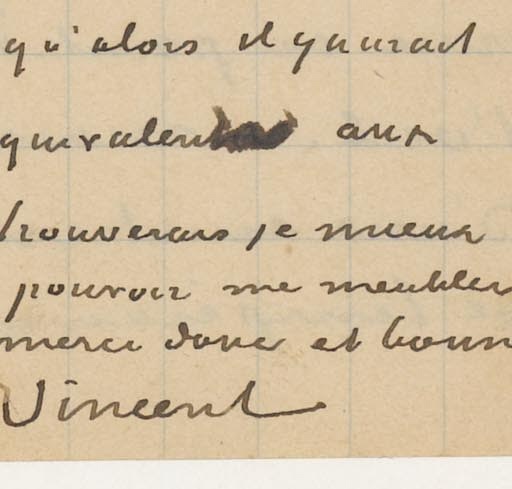 qu'alors il y aurait
quivalent aux
trouverais je mieux
pouvoir me meubler
merci donc et bonn
Vincent